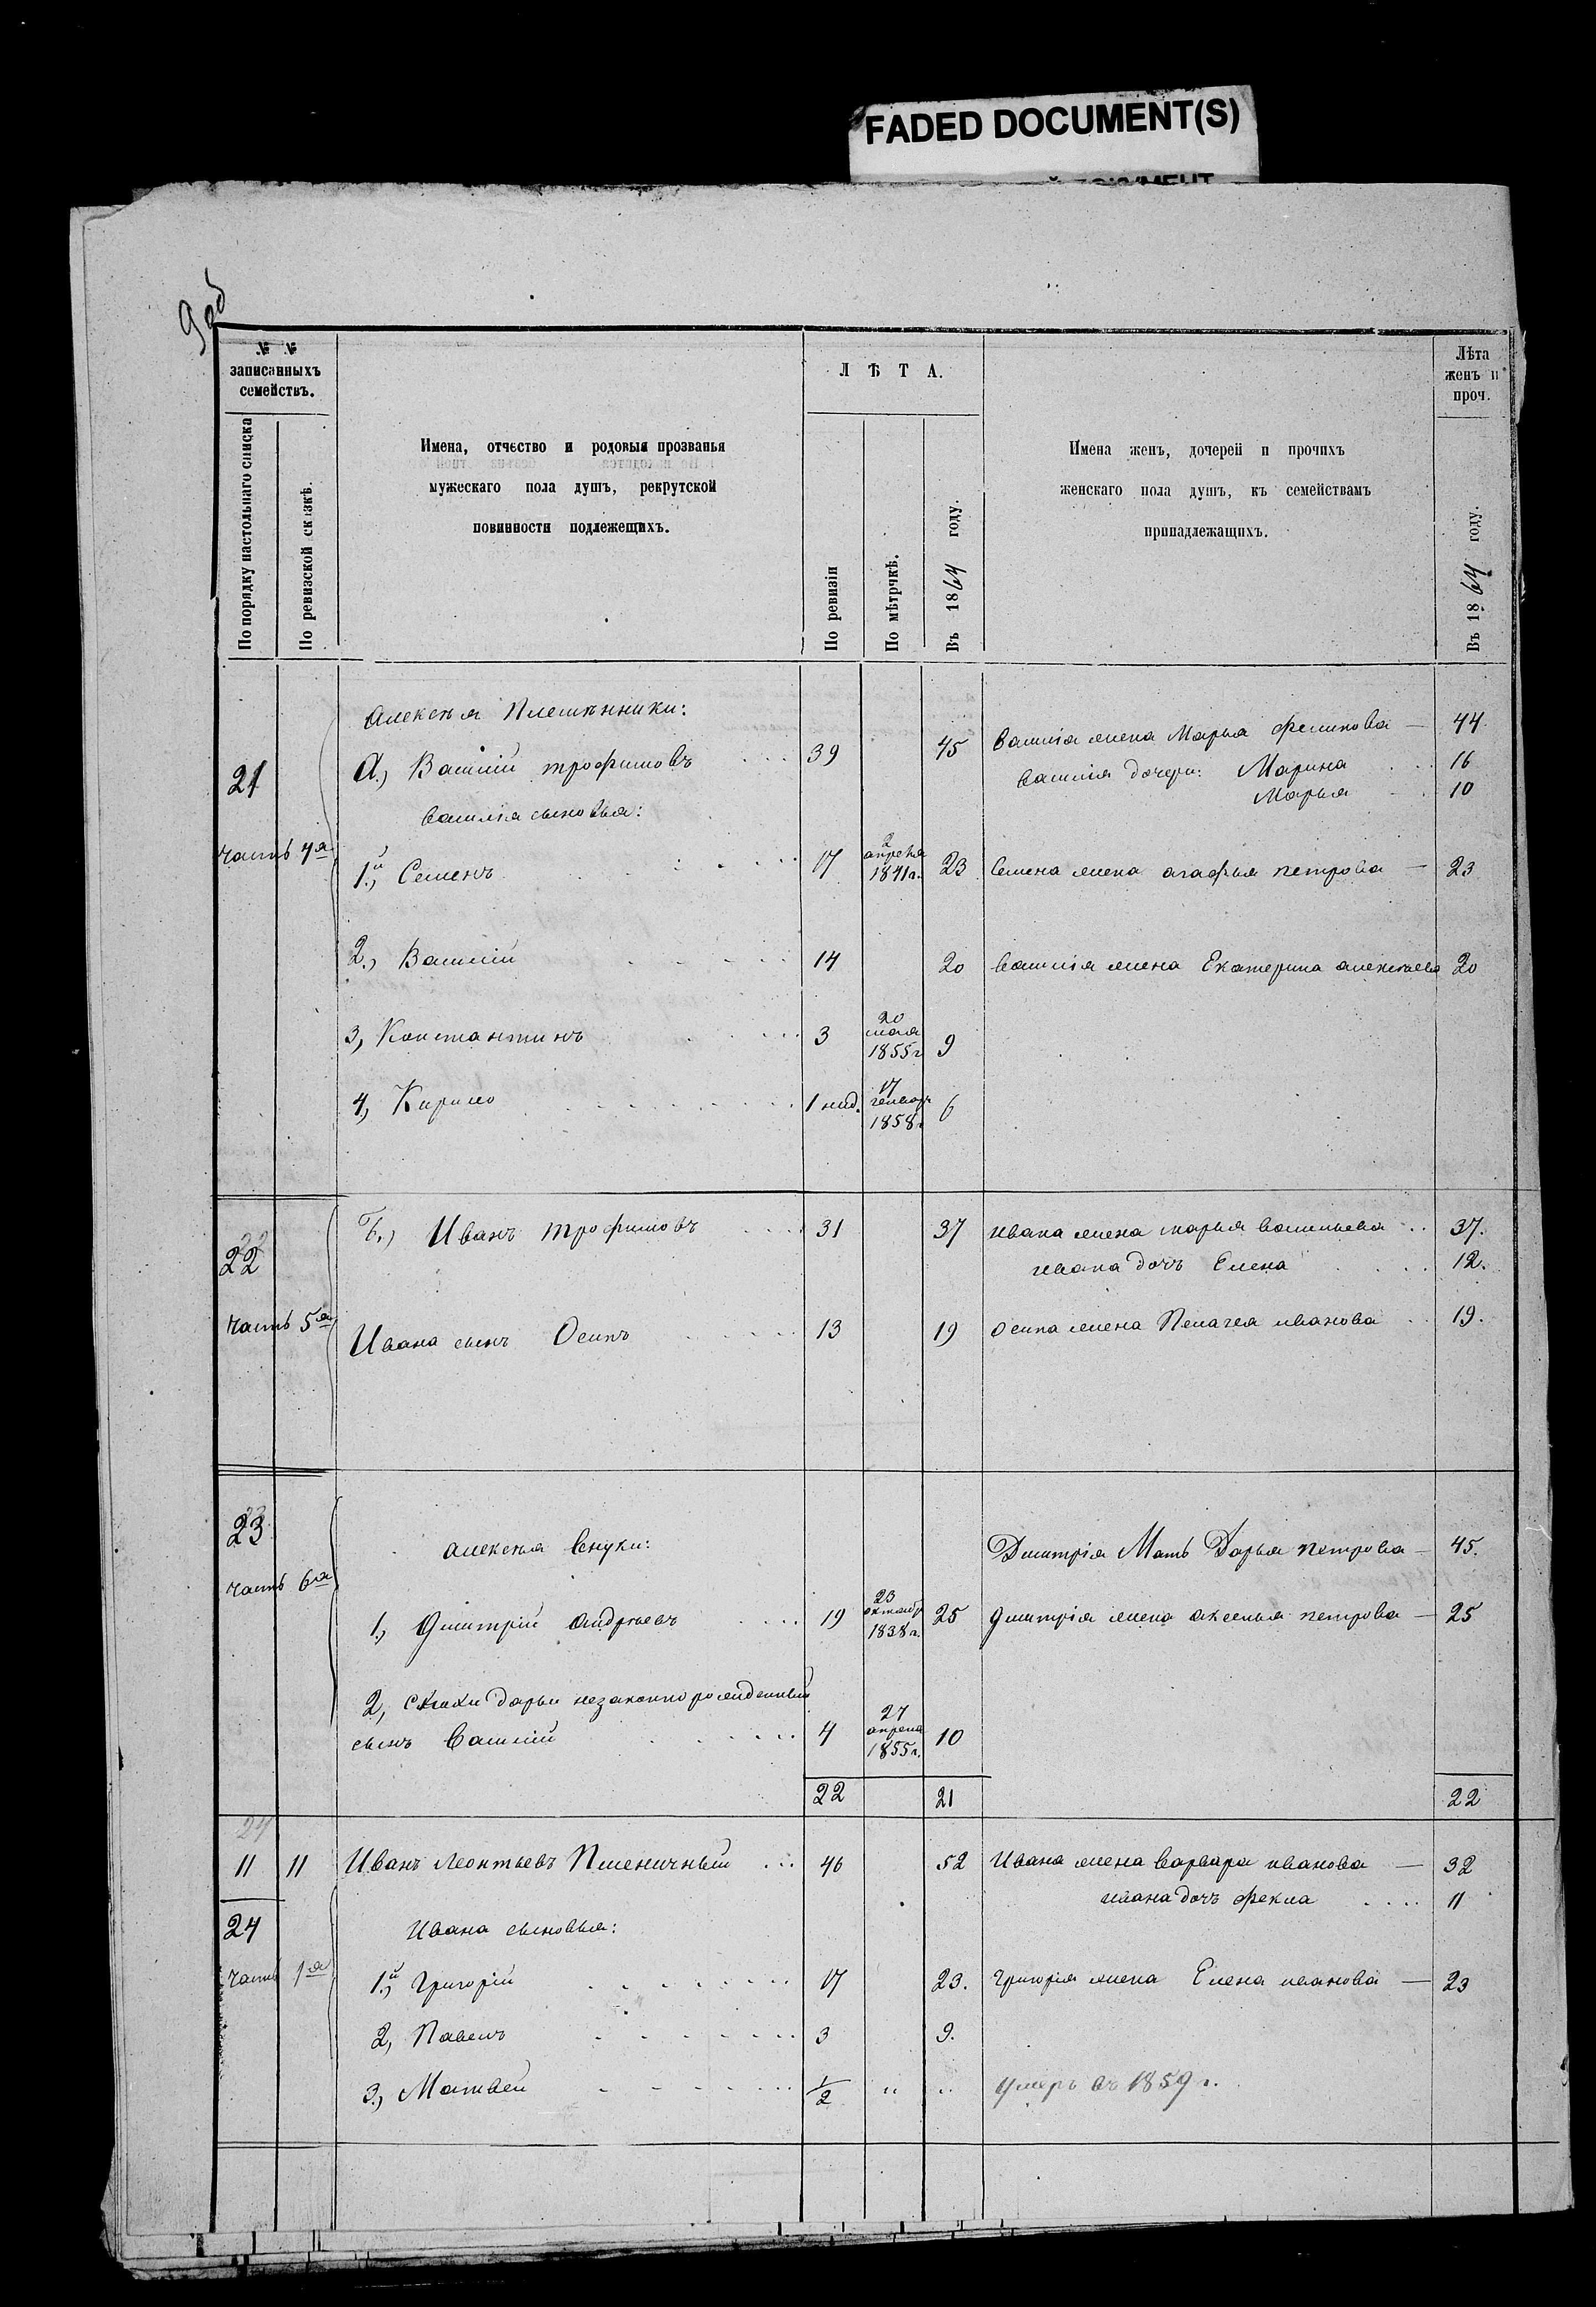 FADED DOCUMENT(S)
9 об
№ №
записанныхъ
семействъ.
По порядку настольнаго списка
По ревизской сказкѣ.
Имена, отчество и родовыя прозванья
мужескаго пола душъ, рекрутской
повинности подлежещихъ.
ЛѢТА.
По ревизіи
По мѣтрчкѣ.
Въ 1864 году.
Имена женъ, дочерей и прочихъ
женскаго пола душъ, къ семействамъ
принадлежащихъ.
Лѣта
женъ и
проч.
Въ 1864 году.
Алексѣя Племѣнники:
21 А.) Василій трофимовъ 39 45 Василія жена Марья 44
Василія дочери: Марина 16
Марья 10
Василія сыновья:
часть 4я 1й., Семенъ 17 2 апреля 1841г. 23 Семена жена агафья петрова 23
2.) Василій 14 20 Василія жена Екатерина алексѣева 20
3, Константинъ 3 20 мая 1855г 9
4, Кирило 1 нед. 17 генвар 1858г 6
22 Б.) Иванъ трофимовъ 31 37 ивана жена марья васильева 37.
22
ивана дочь Елена 12.
часть 5я Ивана сынъ Осипъ 13 19 осипа жена Пелагея иванова 19.
23
23
алексѣя внуки: Дмитрія Мать Дарья петрова 45.
часть 6я 1, Дмитрій андрѣевъ 19 23 октабр 1838г. 25 дмитрія жена аксенья петрова 25
2, снохи дарьи незаконнорожденный
сынъ Василій 4 27 апреля 1855г. 10
22 21 22
24
11 11 Иванъ Леонтьевъ Пшеничный 46 52 Ивана жена варвара иванова 32
ивана дочь фекла 11
24 Ивана сыновья:
часть 1я 1й., Григорій 17 23. Григорія жена Елена иванова 23
2, Павелъ 3 9.
3., Матвей 1/2 " " умеръ въ 1859 г.